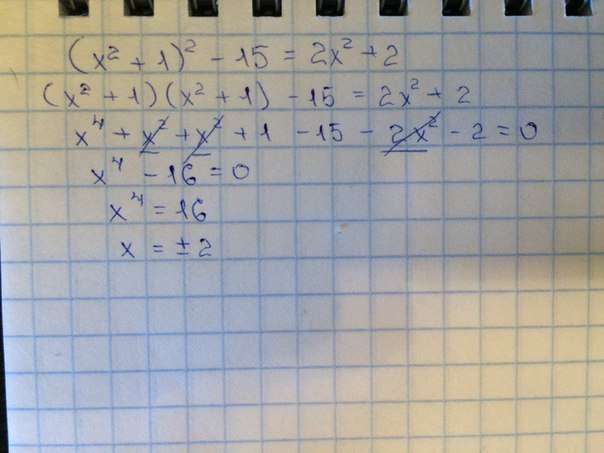 (x² + 1)² - 15 = 2x² + 2
(x² + 1)(x² + 1) - 15 = 2x² + 2
x⁴ + x² + x² + 1 - 15 - 2x² - 2 = 0
x⁴ - 16 = 0
x⁴ = 16
x = ± 2